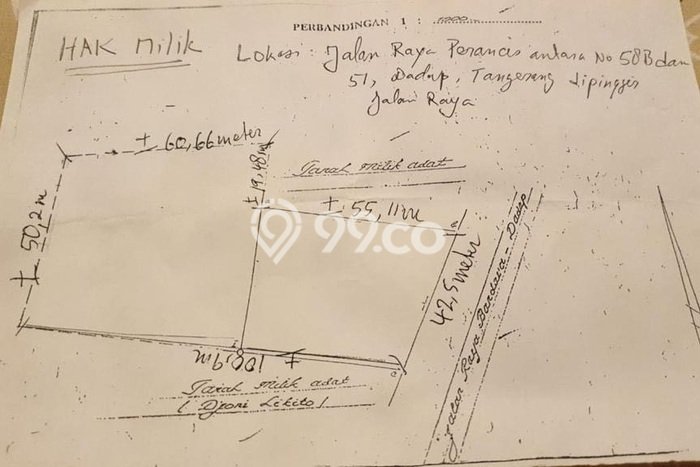 PERBANDINGAN 1 : 1000
HAK MILIK
Lokasi : Jalan Raya Perancis antara No 58B dan
51, Dadap, Tangerang dipinggir
Jalan Raya
± 60,66 meter
± 19,48 m
Tanah milik adat
± 55,11 m
± 50,2 m
99.co
42,5 meter
Jalan Raya Bandara - Dadap
± 100,9 m
Tanah milik adat
( Djoni Likito )